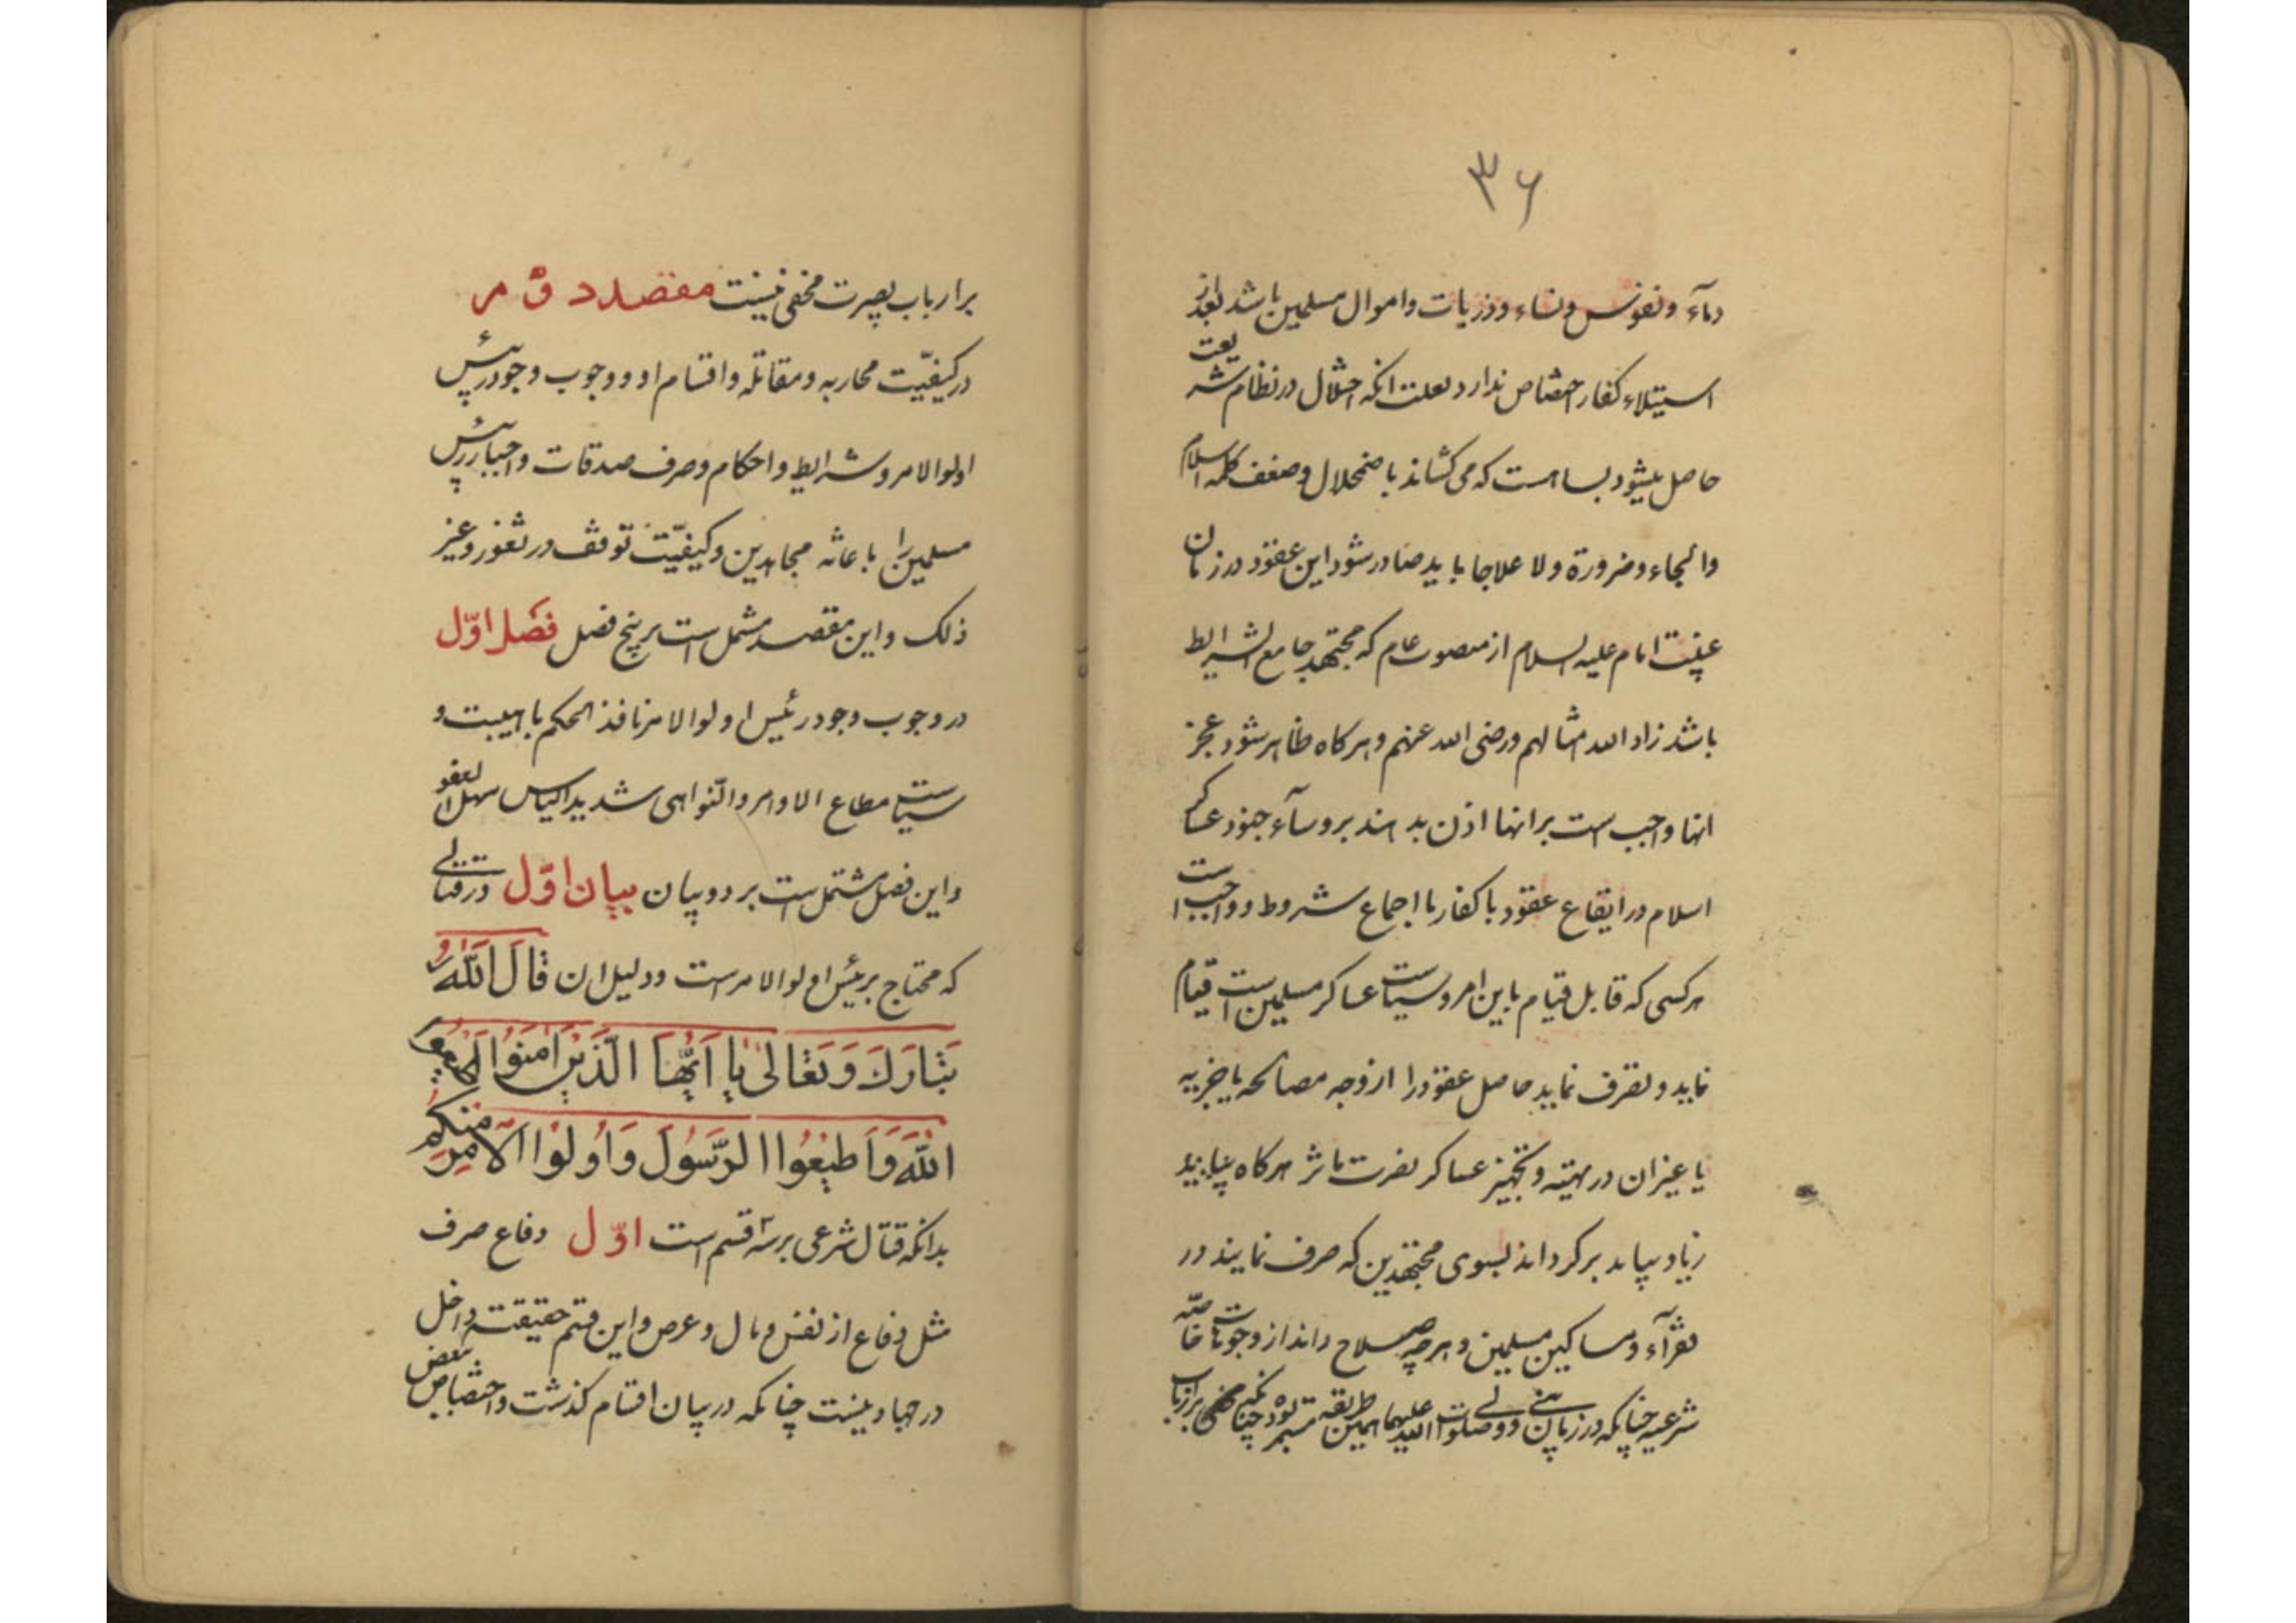 ۳۶
دمآء و نفوس و نساء و ذریات و اموال مسلمین باشد بعد از
استیلاء کفار اختصاص ندارد بعلت انکه اختلال در نظام شریعت
حاصل میشود بسا هست که می کشاند باضمحلال و ضعف کلمه اسلام
و الجاء و ضرورة و لا علاجا باید صادر شود این عقود در زمان
غیبت امام علیه السلام از منصوب عام که مجتهد جامع الشرایط
باشد زاد الله امثالهم و رضی الله عنهم و هرکاه ظاهر شود عجز
انها واجب است بر انها اذن بدهند بروسآء جنود عساکر
اسلام در ایقاع عقود با کفار با اجماع شروط و واجب است
هر کسی که قابل قیام باین امر و سیاست عساکر مسلمین است قیام
نماید و تصرف نماید حاصل عقود را از وجه مصالحه یا جزیه
یا غیر ان در تهیّه و تجهیز عساکر نصرت ماثر هرکاه بیابند
زیاد بیاید برکرداند بسوی مجتهدین که صرف نمایند در
فقرآء و مساکین مسلمین و هرچه صلاح دانند از وجوهات خاصّه
شرعیه چنانکه در زمان نبی و ولی صلوات الله علیهما همین طریقه مستمر بوده چنانکه مخفی بر ارباب
بر ارباب بصیرت مخفی نیست مقصد دوّم
در کیفیّت محاربه و مقاتله و اقسام او و وجوب وجود رئیس
اولوا الامر و شرایط و احکام و صرف صدقات و اجبار رئیس
مسلمین را باعانه مجاهدین و کیفیّت توقف در ثغور و غیر
ذلک و این مقصد مشتمل است بر پنج فصل فصل اوّل
در وجوب وجود رئیس اولوا الامر نافذ الحکم با هیبت و
سیاست مطاع الاوامر و النّواهی شدید الباس سهل العفو
و این فصل مشتمل است بر دو بیان بیان اوّل در قتالی
که محتاج برئیس اولوا الامر است و دلیل ان قَالَ اللّٰهُ
تَبَارَكَ وَتَعَالىٰ يَا اَيُّهَا الَّذينَ امَنُوا اَطيعُوا
اللّٰهَ وَاَطيعُوا الرَّسُولَ وَاُولُوا الْاَمْرِ مِنْكُم
بدانکه قتال شرعی بر سه قسم است اوّل دفاع صرف
مثل دفاع از نفس و مال و عرض و این قسم حقیقتة داخل
در جهاد نیست چنانکه در بیان اقسام کذشت و اختصاص ببعض